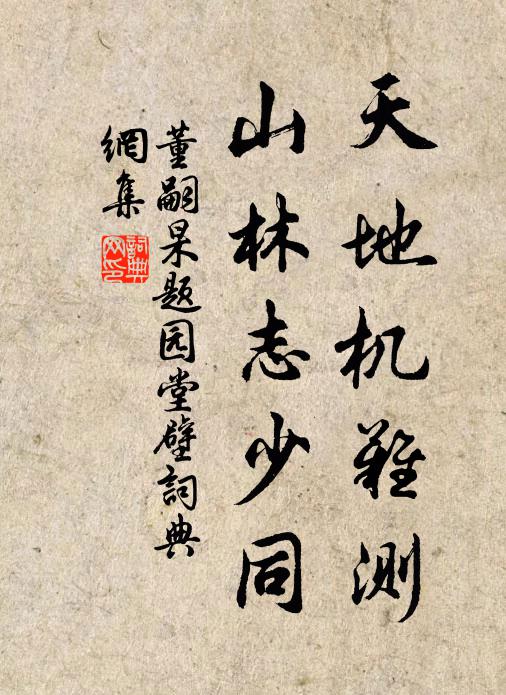 天地机难测
山林志少同
董嗣杲题园堂壁詞典
網集
詞典
网印